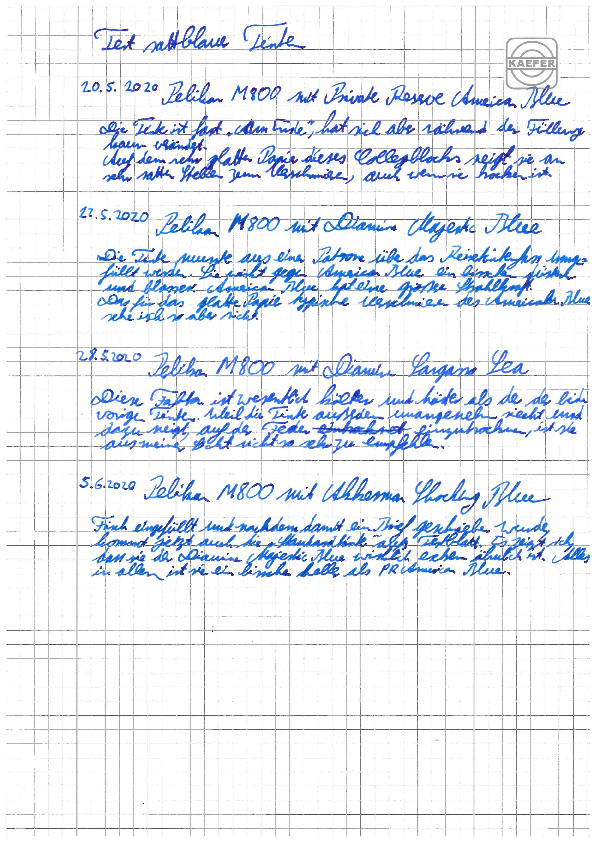 Test sattblauer Tinten
KAEFER
20.5.2020 Pelikan M800 mit Private Reserve American Blue
Die Tinte ist fast „am Ende", hat sich aber während der Füllung
kaum verändert.
Auf dem sehr glatten Papier dieses Collegeblocks neigt sie an
sehr satten Stellen zum Verschmieren, auch wenn sie trocken ist
22.5.2020 Pelikan M800 mit Diamine Majestic Blue
Die Tinte musste aus einer Patrone über das Reisetintenfass umge-
füllt werden. Sie wirkt gegen American Blue ein bisschen
und blasser. American Blue hat eine große Strahlkraft.
Das für das glatte Papier typische Verschmieren des American Blue
sehe ich so aber nicht.
28.5.2020 Pelikan M800 mit Diamine Sargasso Sea
Diese Farbton ist wesentlich kälter und härter als der der beiden
vorigen Tinten. Weil die Tinte außerdem unangenehm riecht und
dazu neigt, auf der Feder eintrocknet einzutrocknen, ist sie
aus meiner Sicht nicht so sehr zu empfehlen.
5.6.2020 Pelikan M800 mit Akkerman Shocking Blue
Frisch eingefüllt und nachdem damit ein Brief geschrieben wurde,
kommt jetzt auch die aufs Testblatt. Es zeigt sich,
dass sie der Diamine Majestic Blue wirklich extrem ähnlich ist. Alles
in allem ist sie ein bisschen heller als PR American Blue.